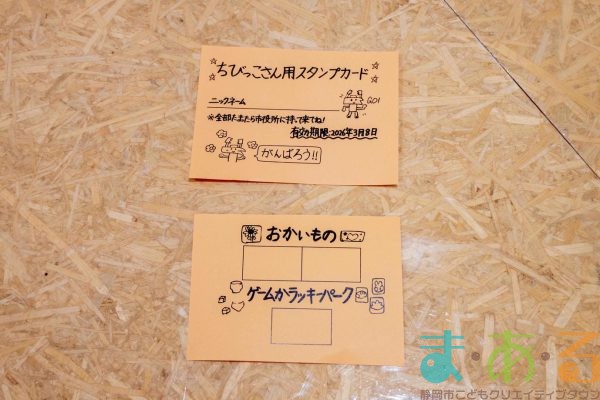 ちびっこさん用スタンプカード
ニックネーム
GO!
※全部たまたら市役所に持って来てね!
有効期限:2026年3月8日
がんばろう!!
おかいもの
ゲームかラッキーパーク
ま・あ・る
静岡市こどもクリエイティブタウン